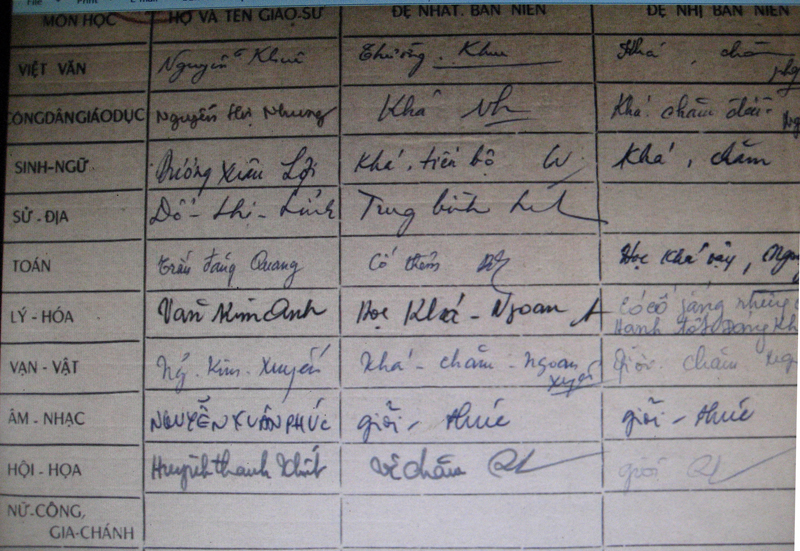 File Print
MÔN HỌC HỌ VÀ TÊN GIÁO-SƯ ĐỆ NHẤT BÁN NIÊN ĐỆ NHỊ BÁN NIÊN
VIỆT VĂN Nguyễn Khuê Thường. Khuê Khá, chăm
CÔNG DÂN GIÁO DỤC Nguyễn thị Nhung Khá Nh Khá. chăm
SINH-NGỮ Dương Xuân Lợi Khá, tiến bộ Khá, chăm
SỬ - ĐỊA Đỗ - thị - Lĩnh Trung bình
TOÁN Trần đăng Quang Cố thêm Học khá vậy,
LÝ - HÓA Văn Kim Anh Học Khá - Ngoan Có cố gắng nhưng
Hạnh tốt
VẠN - VẬT Ng. Kim. Xuyến Khá - chăm - ngoan Giỏi. chăm
Xuyến
ÂM - NHẠC NGUYỄN XUÂN PHÚC giỏi - Phúc giỏi - Phúc
HỘI - HỌA Huỳnh thanh Vẽ chăm giỏi
NỮ-CÔNG,
GIA-CHÁNH